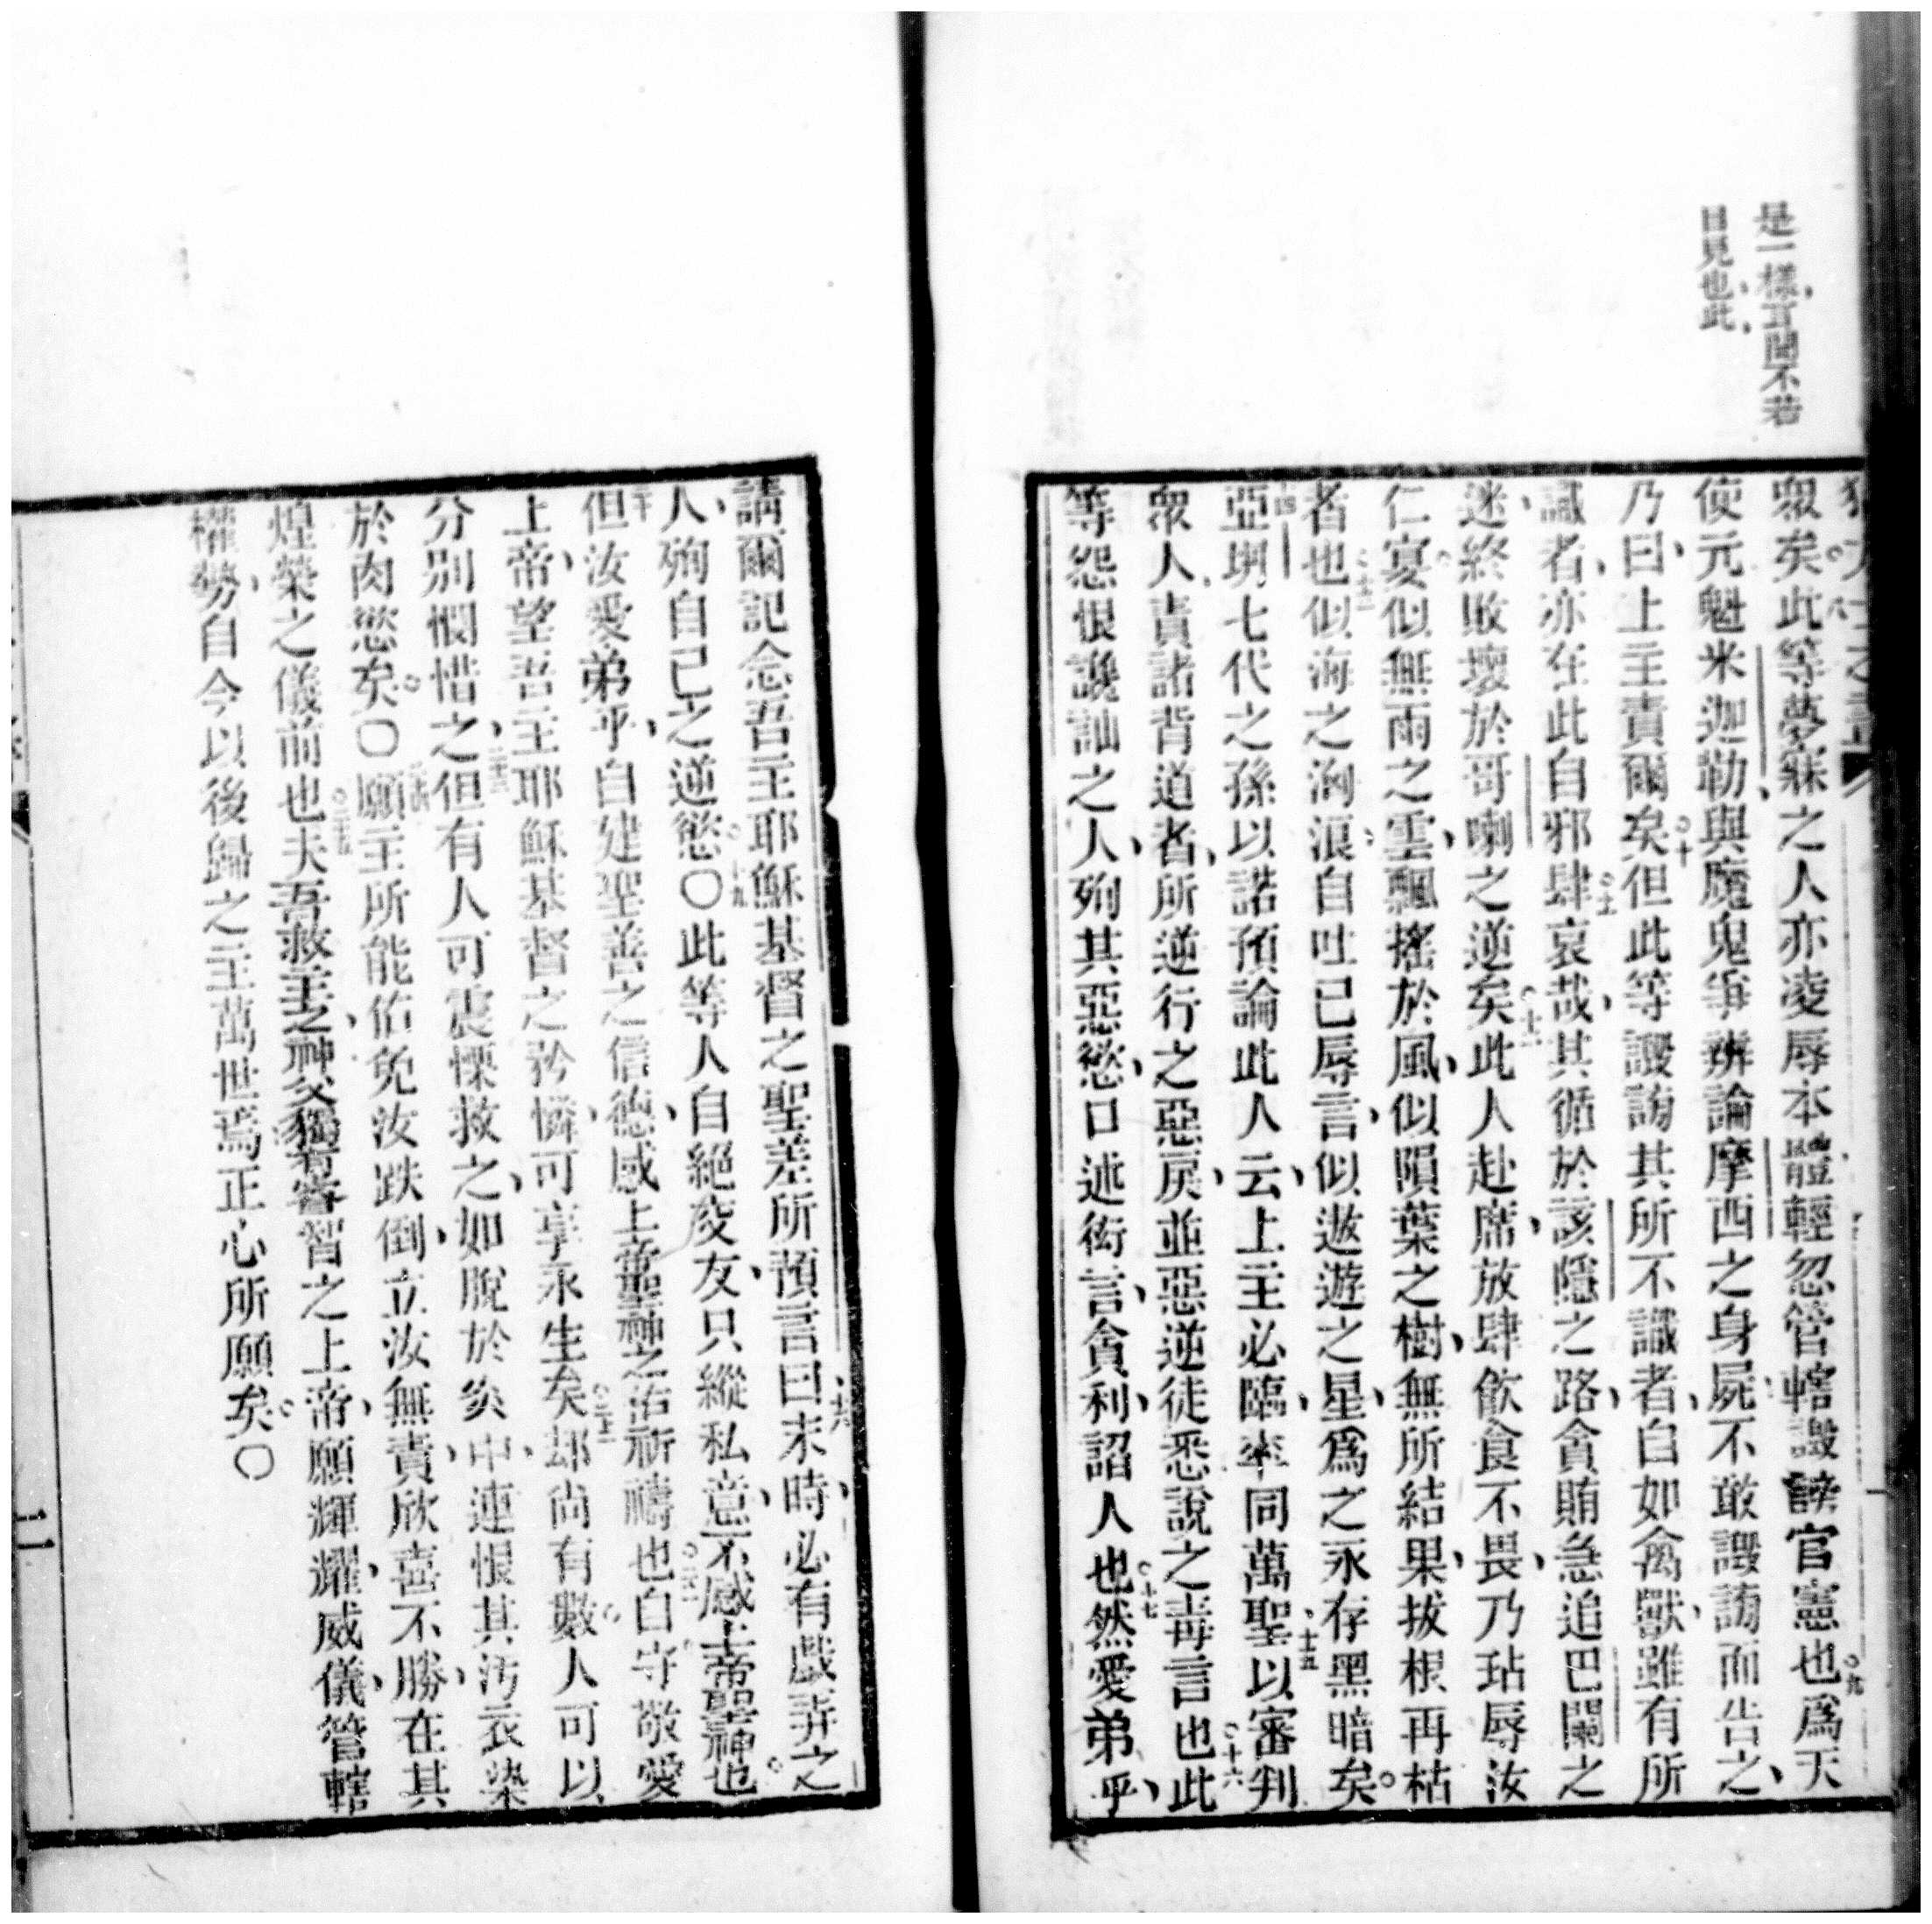 是一樣、耳聞不若
目見也、此
猶大士之書
一
眾矣。此等夢寐之人亦凌辱本體輕忽管轄譭謗官憲也。九爲天
使元魁米迦勒、與魔鬼爭辨論摩西之身屍、不敢譭謗而告之、
乃曰、上主責爾矣。十但此等譭謗其所不識者、自如禽獸、雖有所
識者、亦在此自邪肆。十一哀哉、其循於該隱之路、貪賄急追巴闌之
迷、終敗壞於哥喇之逆矣。十二此人赴席、放肆飲食不畏、乃玷辱汝
仁宴。似無雨之雲、飄搖於風、似隕葉之樹、無所結果、拔根再枯
者也。十三似海之洶浪、自吐己辱言、似遨遊之星、爲之永存黑暗矣。
十四亞坍七代之孫以諾預論此人云、上主必臨、率同萬聖、十五以審判
眾人、責諸背道者、所逆行之惡戾、並惡逆徒悉說之毒言也。十六此
等怨恨譏訕之人、殉其惡慾、口述衒言、貪利、諂人也。十七然愛弟乎、
請爾記念吾主耶穌基督之聖差所預言曰、十八末時、必有戲弄之
人、殉自己之逆慾。〇十九此等人自絕交友、只縱私意、不感上帝聖神也。
二十但汝愛弟乎、自建聖善之信德、感上帝聖神之佑祈禱也。二十一自守敬愛
上帝、望吾主耶穌基督之矜憐、可享永生矣。二十二却尚有數人可以
分別憫惜之、二十三但有人可震慄救之、如脫於炎中、連恨其污衣染
於肉慾矣。〇二十四願主所能佑免汝跌倒、立汝無責、欣喜不勝、在其
煌榮之儀前也。二十五夫吾救主之神父、獨有睿智之上帝、願輝耀、威儀、管轄
權勢、自今以後歸之主萬世焉、正心所願矣。〇
二